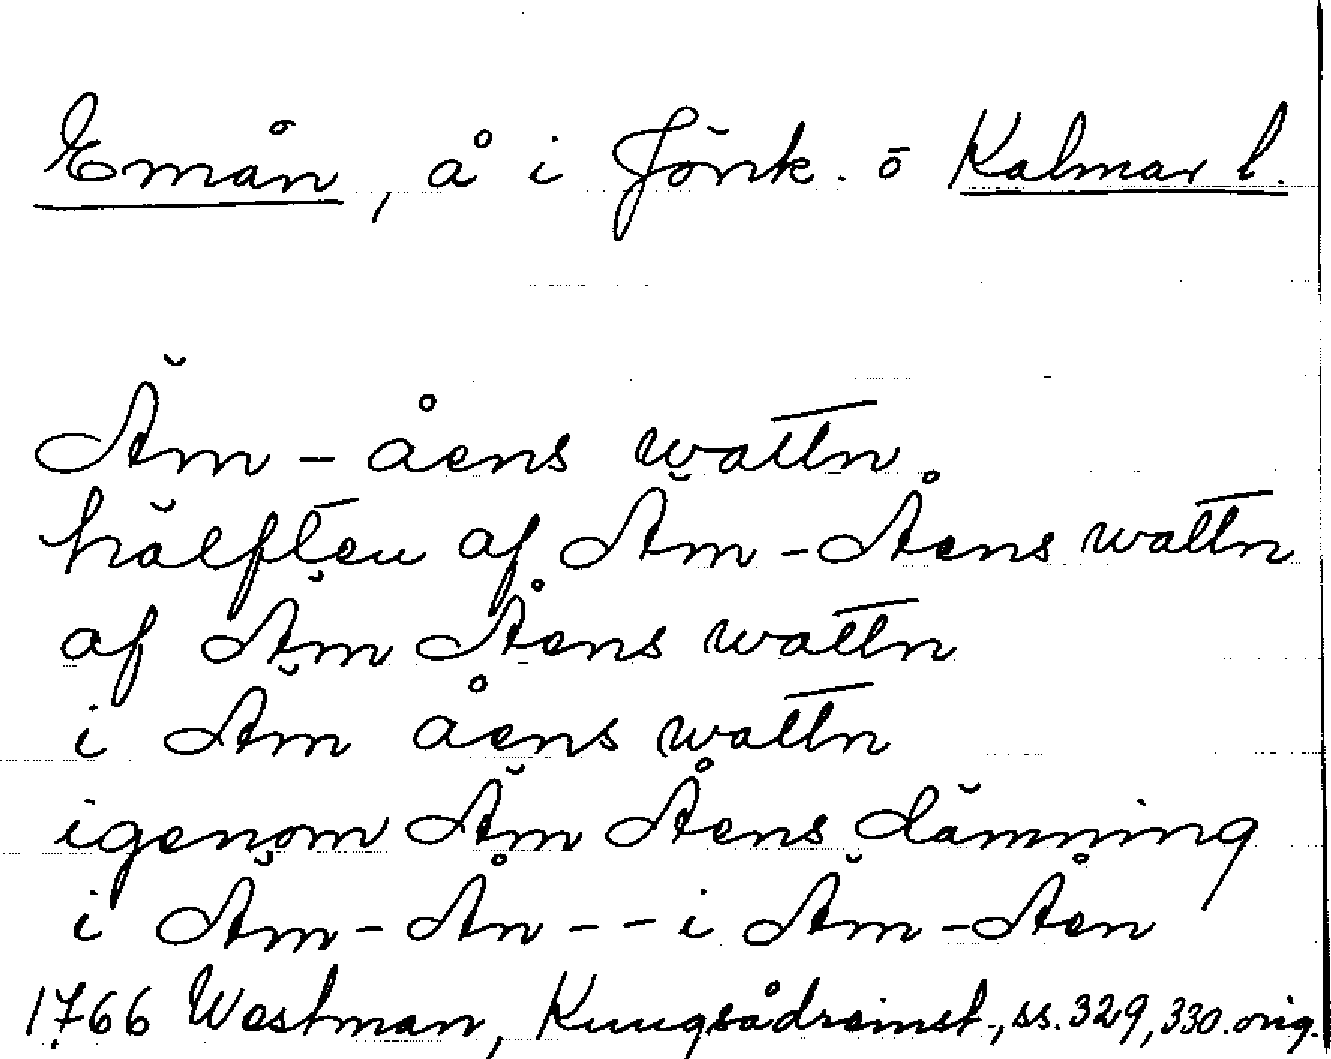 Emån, å i Jönk. o Kalmar l.
Äm-åens wattn
hälften af Äm-Åens wattn
af Äm Åens wattn
i Äm åens wattn
igenom Äm Åens dämning
i Äm-Ån - - i Äm-Åen
1766 Westman, Kungsådreinst., ss. 329, 330. orig.